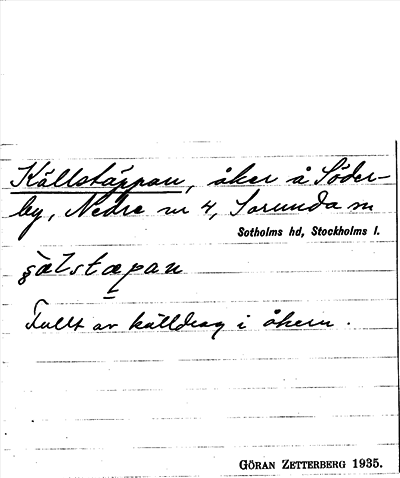 Källstäppan, åker å Söder-
by, Nedre nr 4, Sorunda sn
Sotholms hd, Stockholms l.
Fullt av källdrag i åkern.
GÖRAN ZETTERBERG 1935.